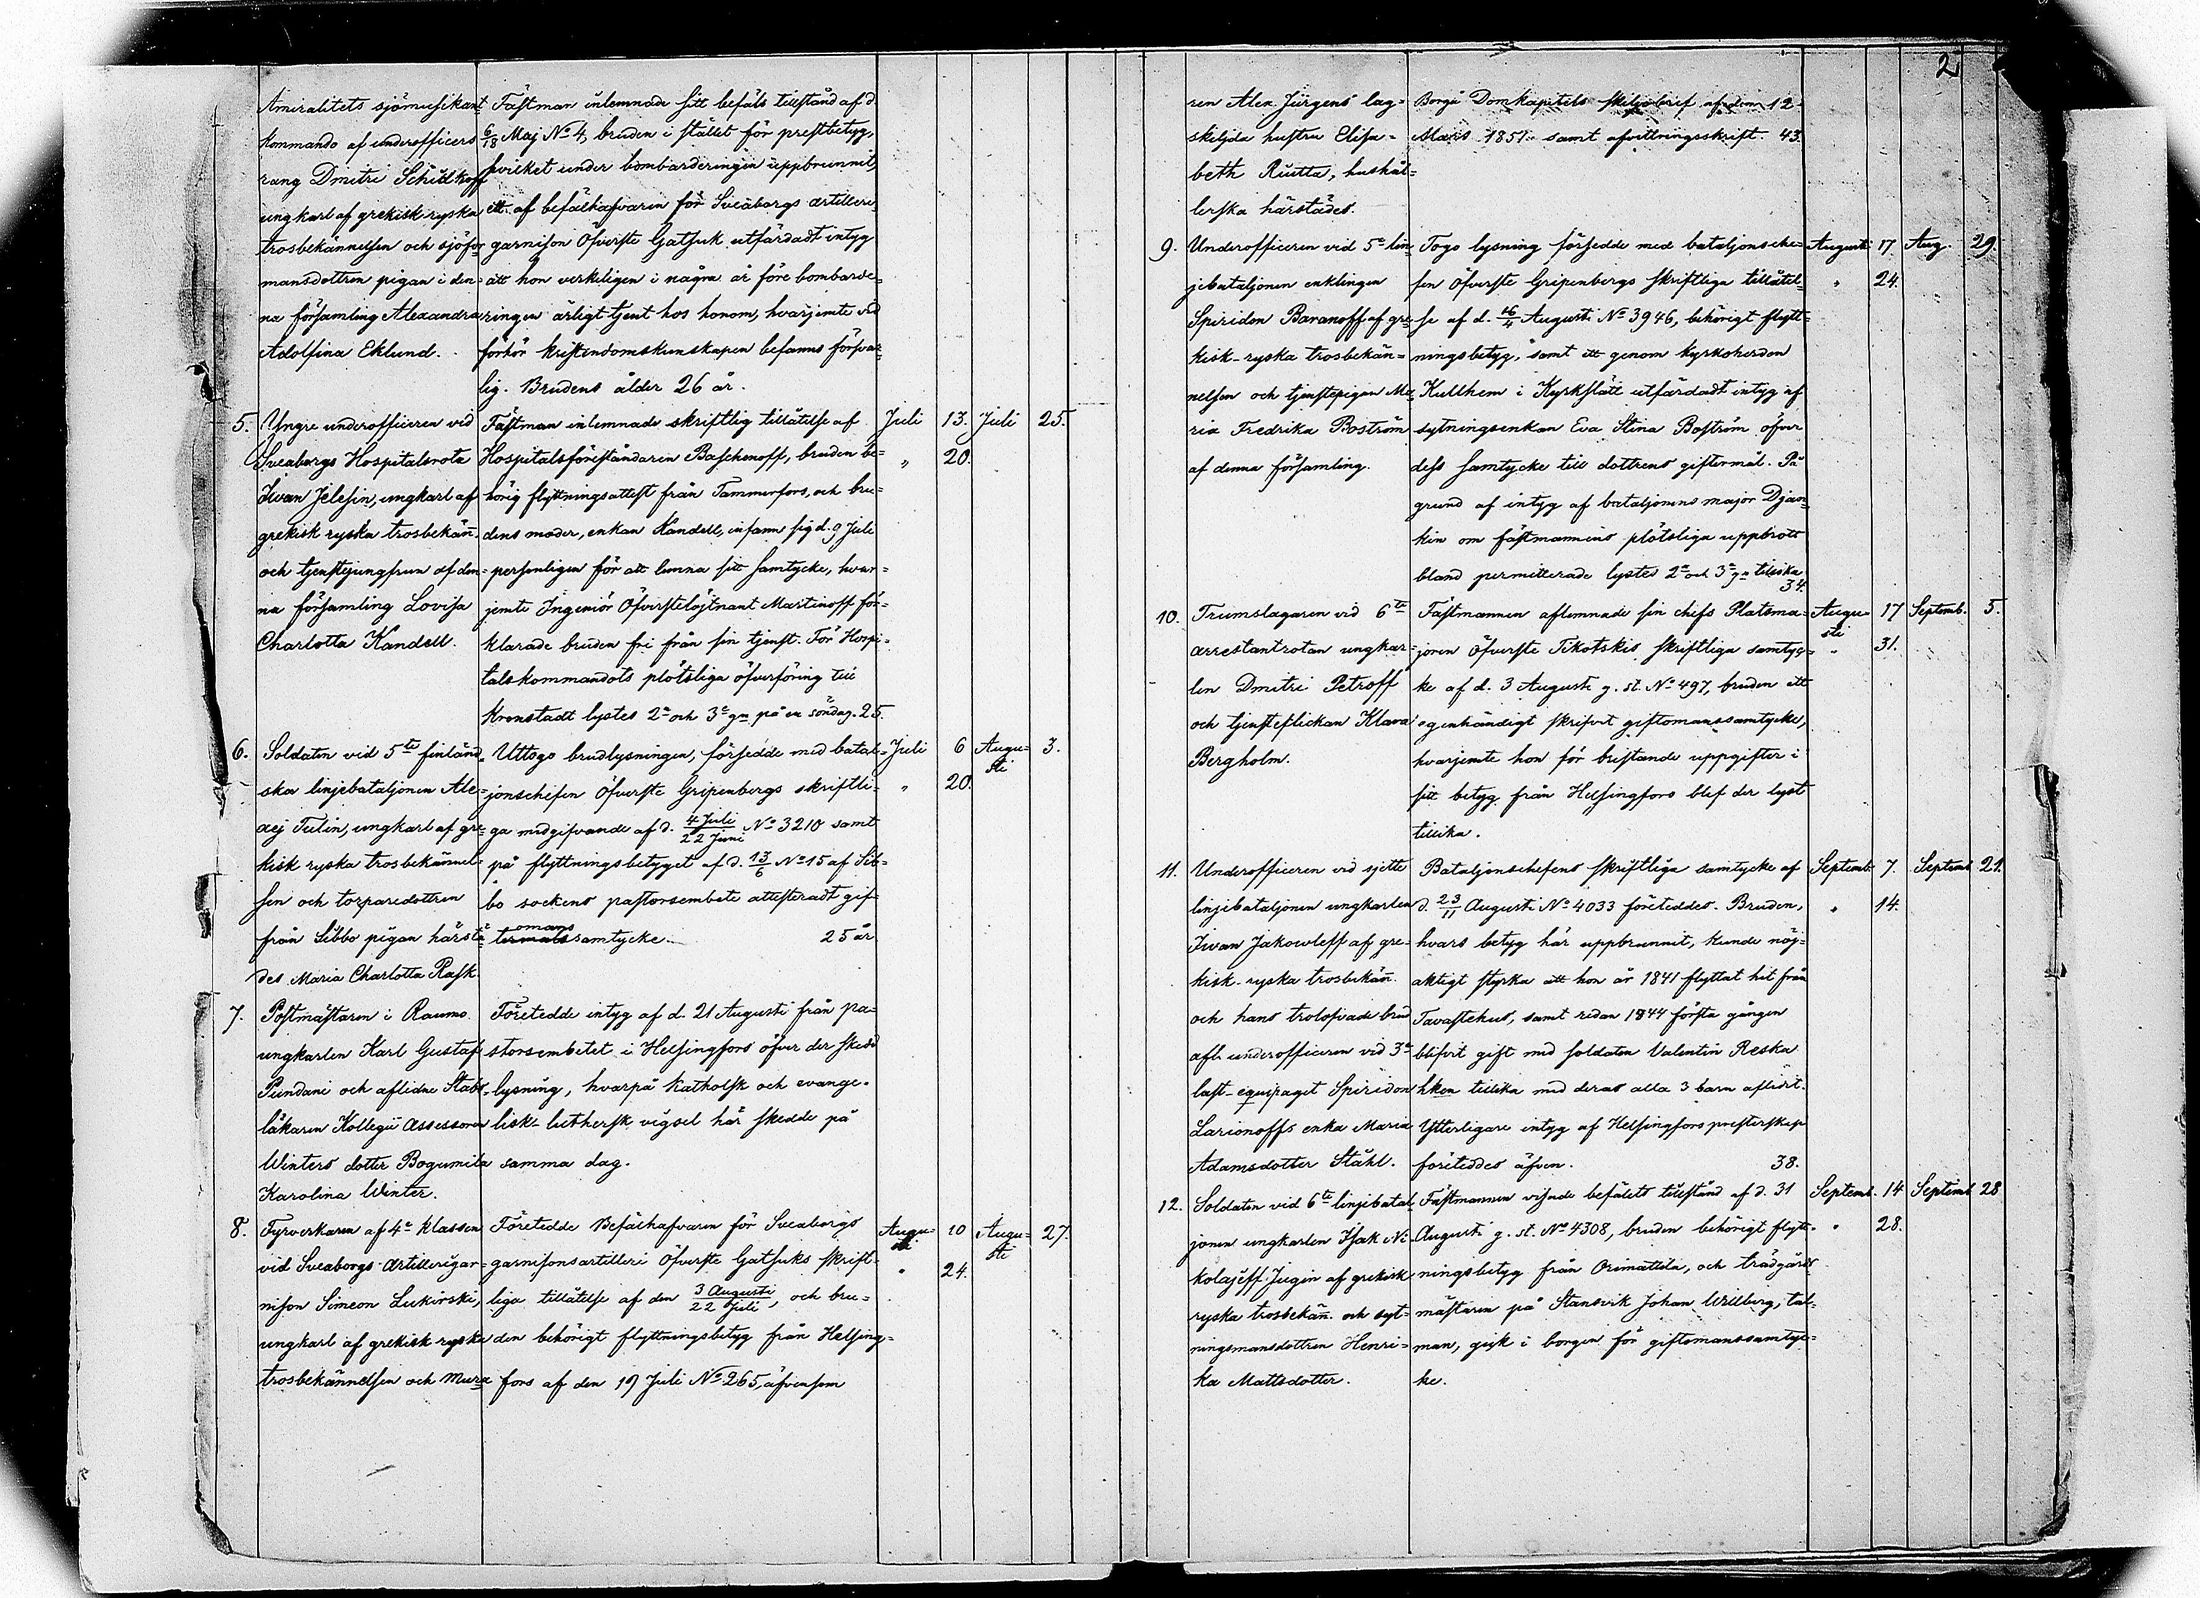 2
Amiralitets sjömusikant
kommando af underofficers
rang Dmitri Schülkoff
ungkarl af grekisk ryska
trosbekännelsen och sjöfor
mansdottren pigan i den-
na församling Alexandra
Adolfina Eklund.
Fästman inlemnade sitt befäls tillstånd af d
6/18 Maj No 4, bruden i stället för prestbetyg,
hvilket under bombarderingen uppbrunnit,
ett af befälhafvaren för Sveaborgs artilleri-
garnison Öfverste Gatsuk utfärdadt intyg
att hon verkeligen i några år före bombarde-
ringen ärligt tjent hos honom, hvarjemte vid
förhör kristendomskunskapen befanns försvar-
lig. Brudens ålder 26 år.
5. Yngre underofficeren vid
Sveaborgs Hospitalsrota
Iwan Jelesin, ungkarl af
grekisk ryska trosbekän̄.
och tjenstejungfrun af den-
na församling Lovisa
Charlotta Kandell.
Fästman inlemnade skriftlig tillåtelse af
Hospitalsföreståndaren Baschenoff, bruden be-
hörig flyttningsattest från Tammerfors, och bru-
dens moder, enkan Kandell, infann sig d. 9 Juli
personligen för att lemna sitt samtycke, hvar-
jemte Ingeniör Öfverstelöjtnant Martinoff för-
klarade bruden fri från sin tjenst. För Hospi-
talskommandots plötsliga öfverföring till
Kronstadt lystes 2a och 3e gn på en söndag. 25.
Juli 13. Juli 25.
„ 20.
6. Soldaten vid 5te finländ-
ska linjebataljonen Ale-
xej Tulin, ungkarl af gre-
kisk ryska trosbekännel-
sen och torparedottren
från Sibbo pigan härstä-
des Maria Charlotta Rask.
Uttogo brudlysningen, försedde med batal-
jonschefen Öfverste Gripenbergs skriftli-
ga medgifvande af d. 4 Juli/22 Juni No 3210 samt
på flyttningsbetyget af d. 13/6 No 15 af Sib-
bo sockens pastorsembete attesteradt gif-
omans
termåls samtycke. 25 år
Juli 6 Augu- 3.
sti
„ 20.
7. Postmästaren i Raumo
ungkarlen Karl Gustaf
Pundani och aflidne Stabs-
läkaren Kollegii Assessoren
Winters dotter Bogumila
Karolina Winter.
Företedde intyg af d. 21 Augusti från pa-
storsembetet i Helsingfors öfver der skedd
lysning, hvarpå katholsk och evange-
lisk-luthersk vigsel här skedde på
samma dag.
8. Fyrverkaren af 4e klassen
vid Sveaborgs Artillerigar-
nison Simeon Lukinski,
ungkarl af grekisk ryska
trosbekännelsen och mura
Företedde Befälhafvaren för Sveaborgs
garnisonsartilleri Öfverste Gatsuks skrift-
liga tillåtelse af den 3 Augusti/22 Juli, och bru-
den behörigt flyttningsbetyg från Helsing-
fors af den 19 Juli No 265, äfvensom
Augu- 10 Augu- 27.
sti sti
„ 24.
ren Alex. Jürgens lag-
skiljda hustru Elisa-
beth Ruutta, hushål-
lerska härstädes.
Borgå Domkapitels skiljobref af den 12
Mars 1851 samt afvittringsskrift. 43
9. Underofficeren vid 5e lin-
jebataljonen enklingen
Spiridon Baranoff af gre-
kisk-ryska trosbekän-
nelsen och tjenstepigan Ma-
ria Fredrika Boström
af denna församling.
Togo lysning försedde med bataljonsche-
fen Öfverste Gripenbergs skriftliga tillåtel-
se af d. 16/4 Augusti No 3946, behörigt flytt-
ningsbetyg, samt ett genom kyrkoherden
Kullhem i Kyrkslätt utfärdadt intyg af
sytningsenkan Eva Stina Boström öfver
dess samtycke till dottrens giftermål. På
grund af intyg af bataljonens major Djan-
kin om fästmannens plötsliga uppbrott
bland permitterade lystes 2a och 3e gn tillika
34.
Augusti 17 Aug. 29.
„ 24.
10. Trumslagaren vid 6te
arrestantrotan ungkar-
len Dmitri Petroff
och tjensteflickan Klara
Bergholm.
Fästmannen aflemnade sin chefs Platsma-
joren Öfverste Tikotskis skriftliga samtyc-
ke af d. 3 Augusti g. st. No 497, bruden ett
egenhändigt skrifvit giftomanssamtycke,
hvarjemte hon för bristande uppgifter i
sitt betyg från Helsingfors blef der lyst
tillika.
Augu- 17 Septemb. 5.
sti
„ 31.
11. Underofficeren vid sjette
linjebataljonen ungkarlen
Iwan Jakowleff af gre-
kisk-ryska trosbekän̄.
och hans trolofvade brud
afl. underofficeren vid 3e
last-equipaget Spiridon
Larionoffs enka Maria
Adamsdotter Ståhl.
Bataljonschefens skriftliga samtycke af
d. 23/11 Augusti No 4033 företeddes. Bruden,
hvars betyg här uppbrunnit, kunde nöj-
aktigt styrka att hon år 1841 flyttat hit från
Tavastehus, samt redan 1844 första gången
blifvit gift med soldaten Valentin Reska
hken tillika med deras alla 3 barn aflidit.
Ytterligare intyg af Helsingfors presterskap
företeddes äfven. 38.
Septemb. 7. Septemb 21.
„ 14.
12. Soldaten vid 6te linjebatal
jonen ungkarlen Isak Ni-
kolajeff Jugin af grekisk
ryska trosbekän̄. och syt-
ningsmansdottren Henri-
ka Mattsdotter.
Fästmannen visade befälets tillstånd af d. 31
Augusti g. st. No 4308, bruden behörigt flytt-
ningsbetyg från Orimattila, och trädgårds
mästaren på Stansvik Johan Willberg, tal-
man, gick i borgen för giftomanssamtyc-
ke.
Septemb. 14 Septemb 28
„ 28.